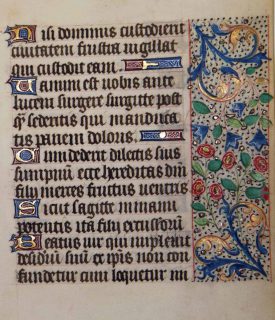 Nisi dominus custodierit
ciuitatem frustra uigilat
qui custodit eam.
Uanum est uobis ante
lucem surgere surgitte post
q̃ sederitis qui manduca
tis panem doloris.
Cum dederit dilectis suis
sumpnũ ecce hereditas dñi
filij merces fructus uentris
Sicut sagitte in manu
potentis ita filij excussorũ
Beatus uir qui impleuit
desideriũ suũ ex ip̃is non con
fundetur cum loquetur ini